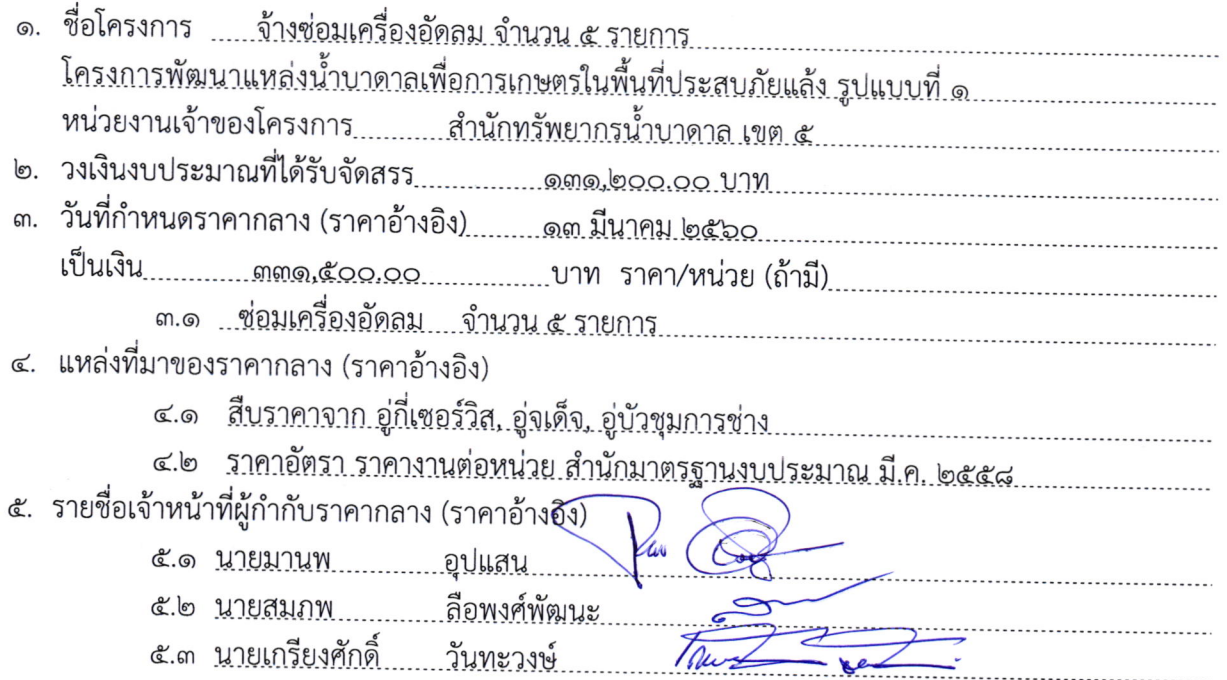 ๑. ชื่อโครงการ จ้างซ่อมเครื่องอัดลม จำนวน ๕ รายการ
โครงการพัฒนาแหล่งน้ำบาดาลเพื่อการเกษตรในพื้นที่ประสบภัยแล้ง รูปแบบที่ ๑
หน่วยงานเจ้าของโครงการ สำนักทรัพยากรน้ำบาดาล เขต ๕
๒. วงเงินงบประมาณที่ได้รับจัดสรร ๑๓๑,๒๐๐.๐๐ บาท
๓. วันที่กำหนดราคากลาง (ราคาอ้างอิง) ๑๓ มีนาคม ๒๕๖๐
เป็นเงิน ๓๓๑,๕๐๐.๐๐ บาท ราคา/หน่วย (ถ้ามี)
๓.๑ ซ่อมเครื่องอัดลม จำนวน ๕ รายการ
๔. แหล่งที่มาของราคากลาง (ราคาอ้างอิง)
๔.๑ สืบราคาจาก อู่กี่เซอร์วิส, อู่จเด็จ, อู่บัวชุมการช่าง
๔.๒ ราคาอัตรา ราคางานต่อหน่วย สำนักมาตรฐานงบประมาณ มี.ค. ๒๕๕๘
๕. รายชื่อเจ้าหน้าที่ผู้กำกับราคากลาง (ราคาอ้างอิง)
๕.๑ นายมานพ อุปแสน
๕.๒ นายสมภพ ลือพงศ์พัฒนะ
๕.๓ นายเกรียงศักดิ์ วันทะวงษ์